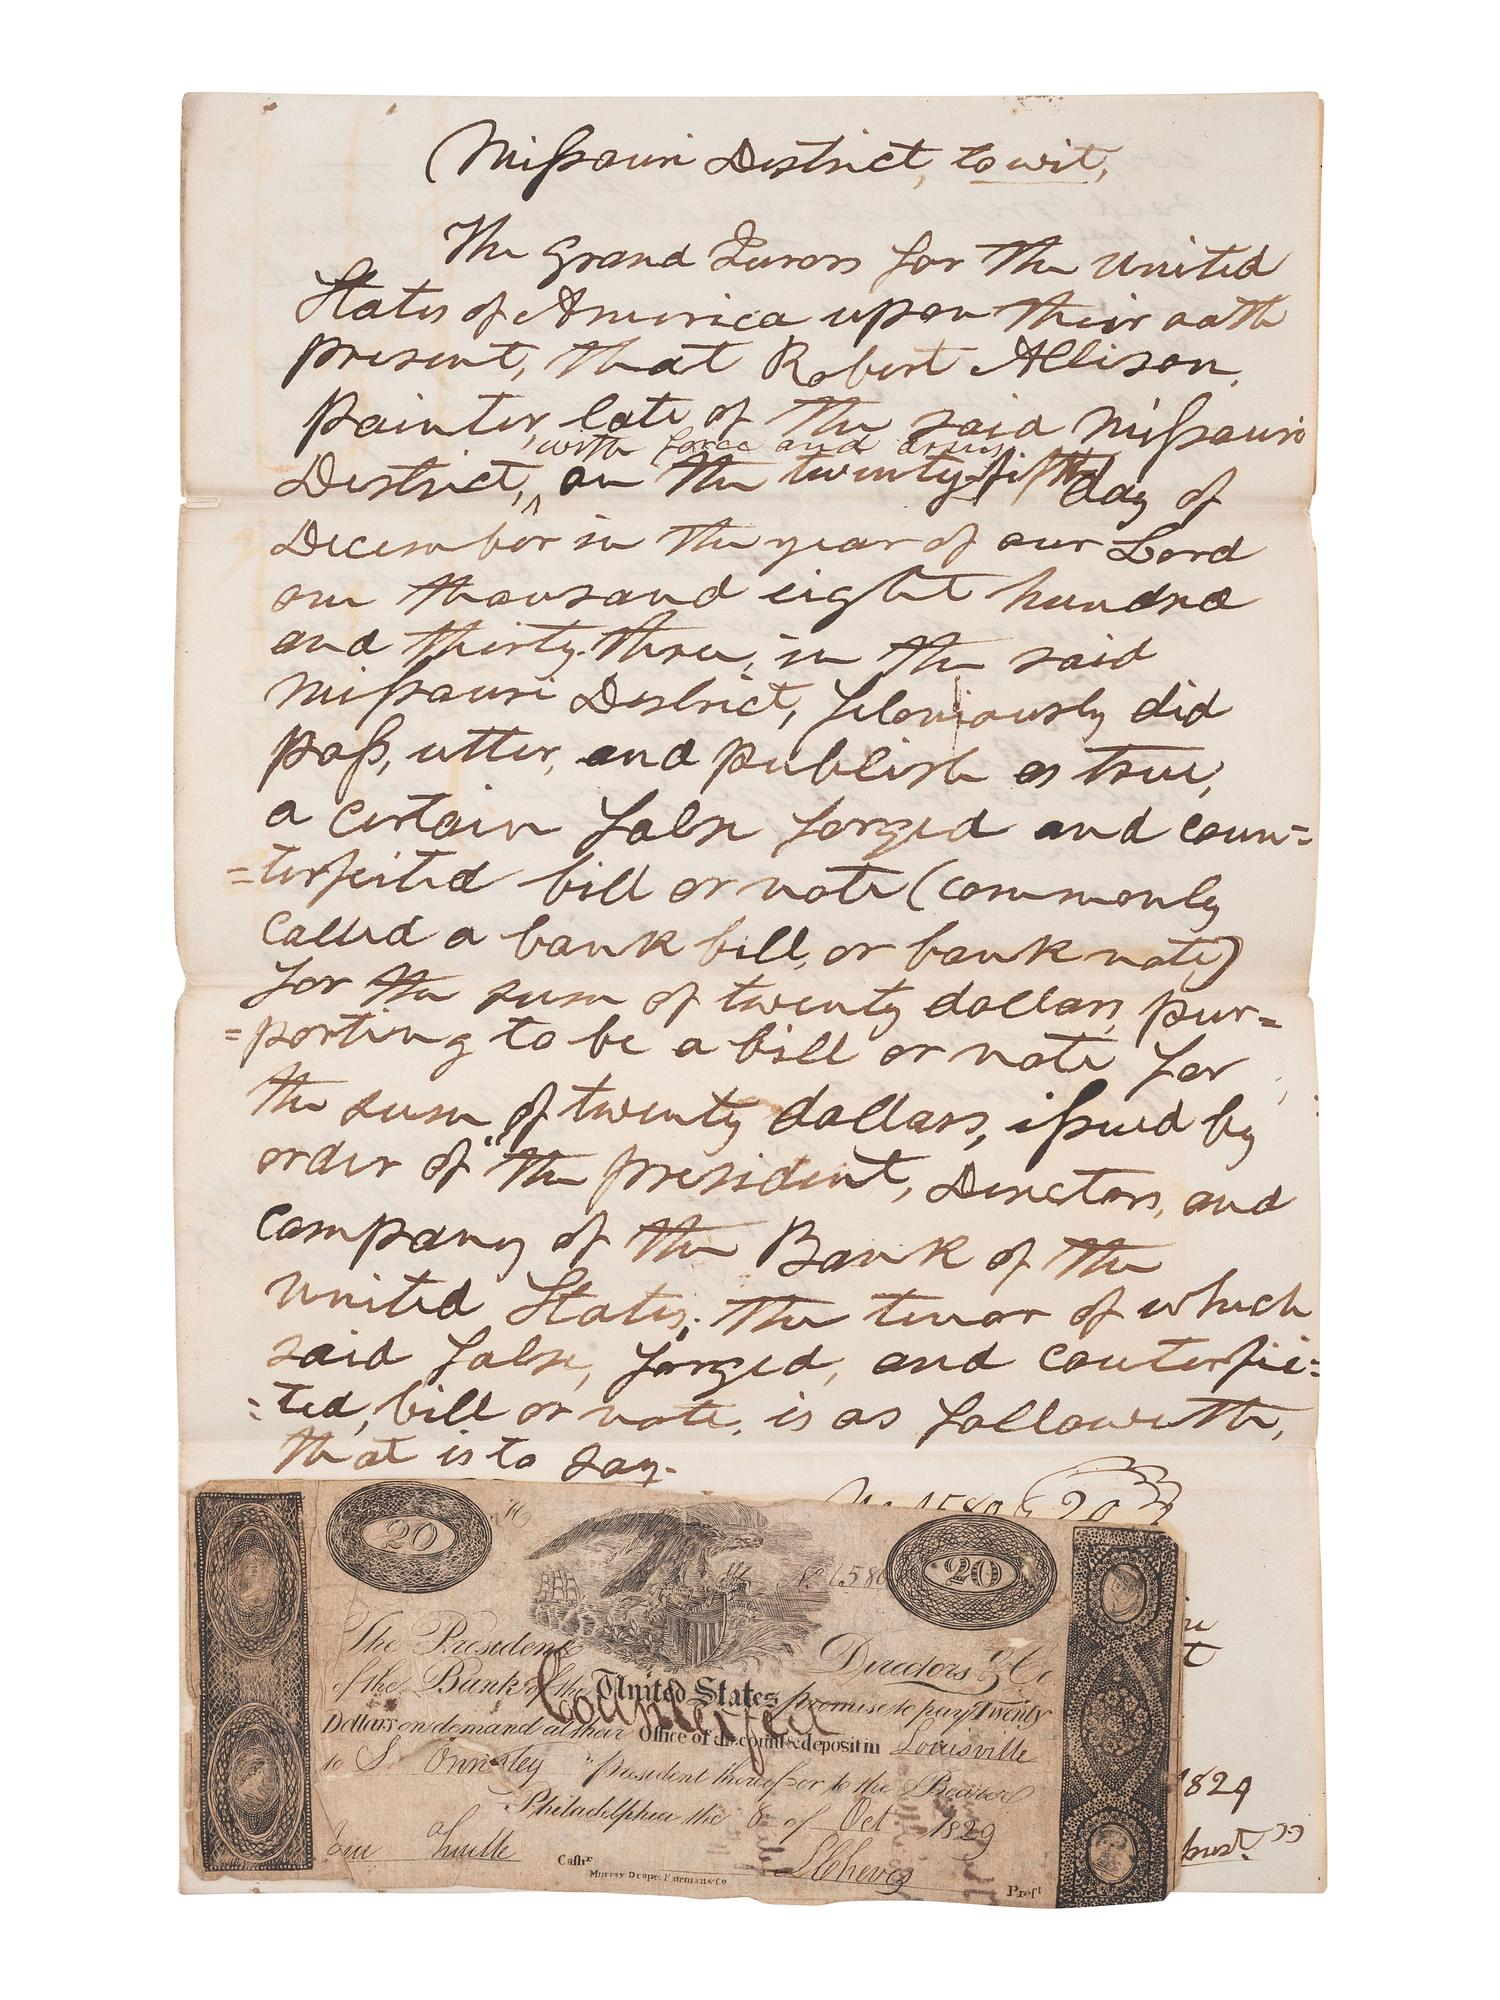 Missouri District, to wit,
The Grand Jurors for the United
States of America upon their oath
present, that Robert Allison,
painter, late of the said Missouri
with force and arms
District, on the twenty-fifth day of
December in the year of our Lord
one thousand eight hundred
and thirty-three, in the said
Missouri District, feloniously did
pass, utter, and publish as true,
a certain false forged and coun=
=terfeited bill or note (commonly
called a bank bill, or bank note)
for the sum of twenty dollars, pur=
=porting to be a bill or note for
the sum of twenty dollars, issued by
order of "the president, Directors, and
company of the Bank of the
United States; the tenor of which
said false, forged, and couterfie=
=ted, bill or note, is as followeth,
that is to say.
No 1580 20
20 No 1580 20
The President Directors & Co
of the Bank of the United States promise to pay Twenty
Counterfeit
Dollars on demand at their Office of discount & deposit in Louisville
to S president thereof or to the Bearer
Philadelphia the 8 of Oct 1829
Cashr. L Cheves Prest
Murray Draper Fairman & Co
1829